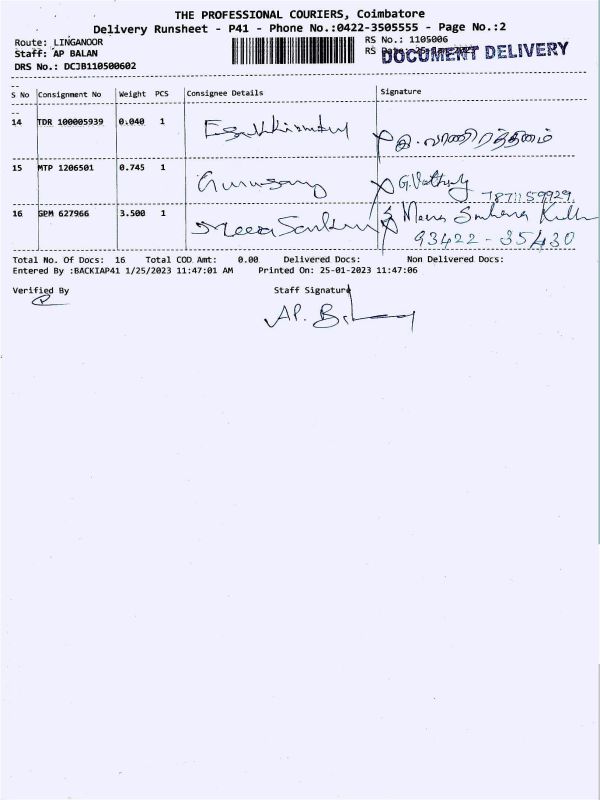 THE PROFESSIONAL COURIERS, Coimbatore
Delivery Runsheet - P41 - Phone No.:0422-3505555 - Page No.:2
Route: LINGANOOR
RS No.: 1105006
Staff: AP BALAN
RS Date: 25-Jan-2023
DOCUMENT DELIVERY
DRS No.: DCJB110500602
S No Consignment No Weight PCS Consignee Details Signature
14 TDR 100005939 0.040 1
15 MTP 1206501 0.745 1 Gurusamy
7871159929
16 GPM 627966 3.500 1 Meera Sankar
93422-35430
Total No. Of Docs: 16 Total COD Amt: 0.00 Delivered Docs: Non Delivered Docs:
Entered By :BACKIAP41 1/25/2023 11:47:01 AM Printed On: 25-01-2023 11:47:06
Verified By Staff Signature